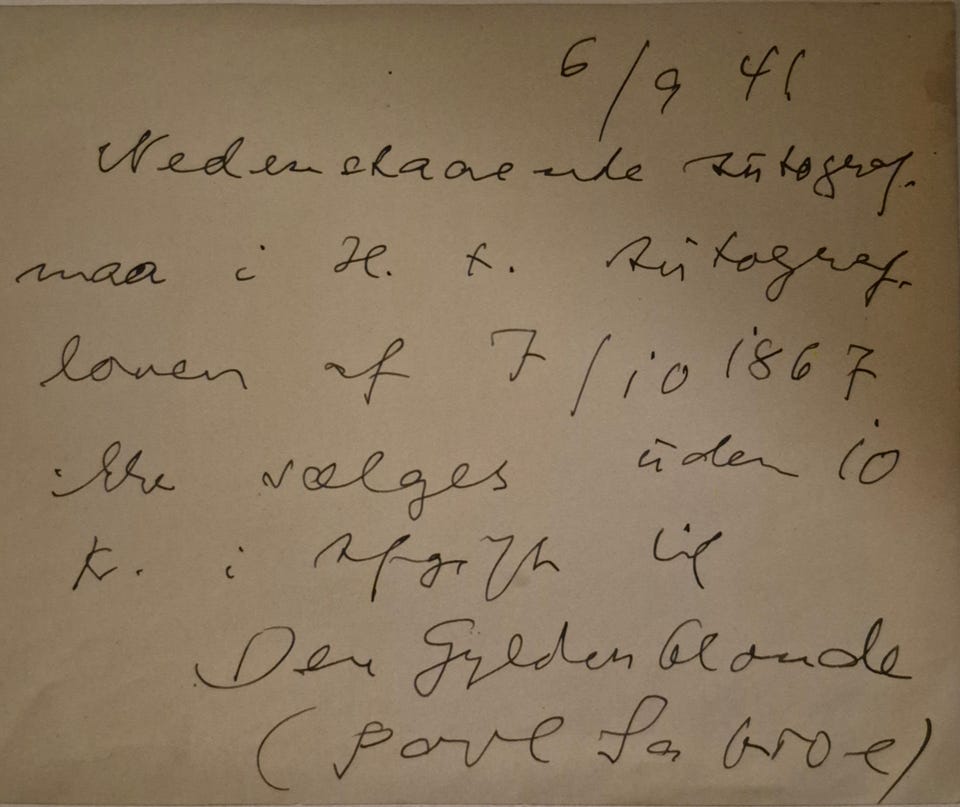 6/9 41
Nedenstaaende Autograf.
maa i H. t. Autograf.
loven af 7/10 1867
ikke sælges uden 10
Kr. i Afgift til
Den Gyldenblonde
(Povl Sabroe)